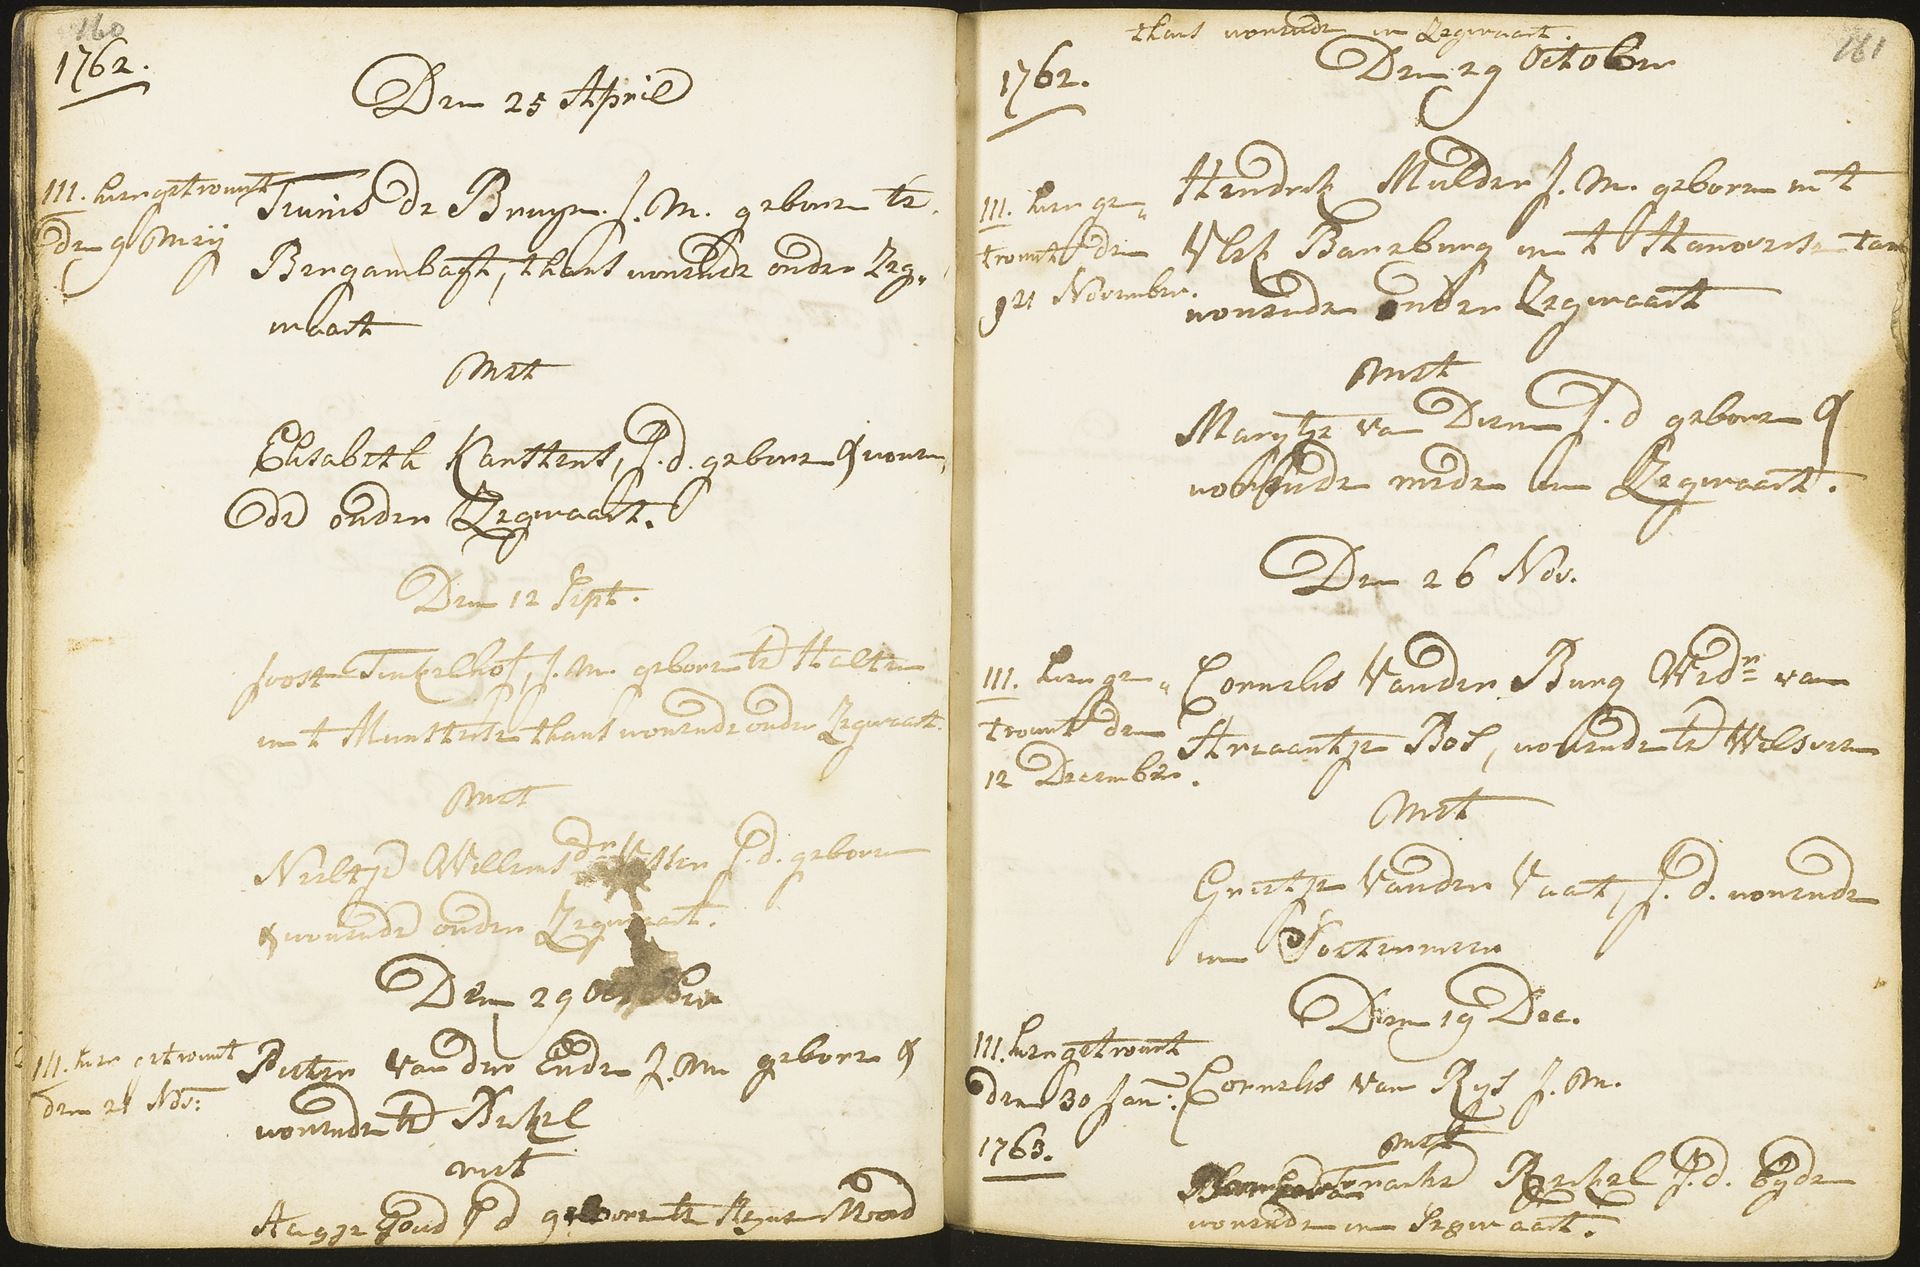 160
1762.
Den 25 April
III. hier getrouwt
den 9 Meij
Teunis de Bruyn. J. M. geboren te
Bergambagt, thans wonende onder Zeg„
waart
Met
Elisabeth Karstens, J. d. geboren & wonen„
de onder Zegwaart.
Den 12 Sept.
Joost Tinkelhof, J. M. geboren te Halteren
in t Munsterse thans wonende onder Zegwaart.
met
Neeltje Willems J. d. geboren
& wonende onder Zegwaart.
Den 29 October
III. hier getrouwt
den 21 Nov:
Pieter van der Ende J. M. geboren &
wonende te Berkel
met
Aagje Goud J d geboren te
161
thans wonende in Zegwaart.
1762.
Den 29 October
III. hier ge„
trouwt den
21 November.
Hendrik Mulder J. M. geboren in t
in t Hanoverse
wonende onder Zegwaart
met
Marytje van Diemen J. d geboren &
wonende mede in Zegwaart.
Den 26 Nov.
III. hier ge„
trouwt den
12 December.
Cornelis van der Burg Wedr van
Ariaantje Bos, wonende te Wilsveen
Met
Grietje van der Vaart, J. d. wonende
in Soetermeer
Den 19 Dec.
III. hier getrouwt
den 30 Jan:
1763.
Cornelis van Rys J. M.
met
Berkel J. d. beyde
wonende in Segwaart.